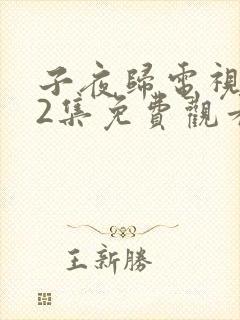 子夜歸電視
2集免費觀看
王新勝